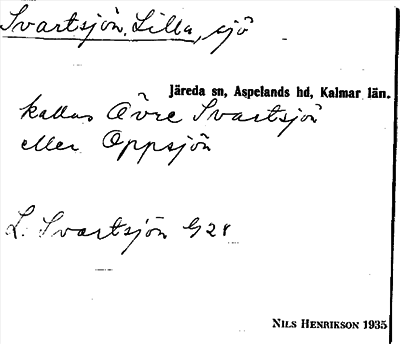 Svartsjön, Lilla, sjö
Järeda sn, Aspelands hd, Kalmar län.
kallas Övre Svartsjön
eller Oppsjön
L. Svartsjön G28
NILS HENRIKSON 1935